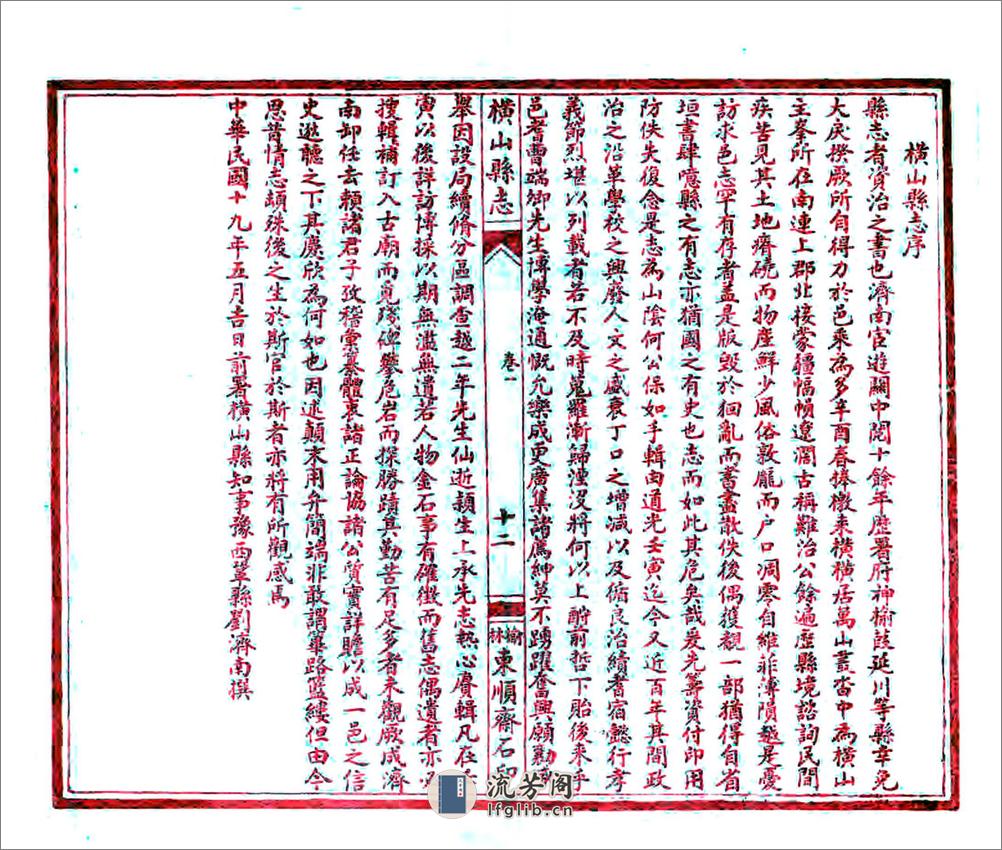 橫山縣志序
縣志者資治之書也濟南宦遊關中閱十餘年歷署府神榆葭延川等縣幸免
大戾揆厥所自得力於邑乘為多辛酉春捧檄來橫橫居萬山叢沓中為橫山
主峯所在南連上郡北接蒙疆幅幀遼濶古稱難治公餘遍歷縣境諮詢民間
疾苦見其土地瘠磽而物產鮮少風俗敦龐而户口凋零自維菲薄隕越是憂
訪求邑志罕有存者盖是版毀於徊亂而書盡散佚後偶獲觀一部猶得自省
垣書肆噫縣之有志亦猶國之有史也志而如此其危矣哉爰先籌資付印用
防佚失復念是志為山陰何公保如手輯由道光壬寅迄今又近百年其間政
治之沿革學校之興廢人文之盛衰丁口之增减以及循良治績耆宿懿行孝
義節烈堪以列載者若不及時蒐羅漸歸湮沒將何以上酧前哲下貽後來乎
邑耆曹端卿先生博學淹通慨允樂成更廣集諸薦紳莫不踴躍奮興願勷
橫山縣志
卷一
十二
榆林東順齋石印
舉因設局續脩分區調查越二年先生仙逝頴生上承先志熱心賡輯凡在
寅以後詳訪博採以期無濫無遺若人物金石事有確徵而舊志偶遺者亦
搜輯補訂入古廟而覓殘碑攀危岩而探勝蹟其勤苦有足多者未觀厥成濟
南卸任去賴諸君子攷稽彙纂體衷諸正論協諸公質實詳贍以成一邑之信
史逖聽之下其慶欣為何如也因述顛末用弁簡端非敢謂篳路籃縷但由今
思昔情志頗殊後之生於斯官於斯者亦將有所觀感焉
中華民國十九年五月吉日前署橫山縣知事豫西鞏縣劉濟南撰
流芳阁
lfglib.cn